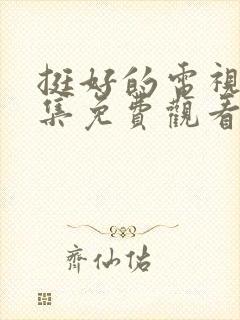 挺好的電視
集免費觀看
齊仙佑